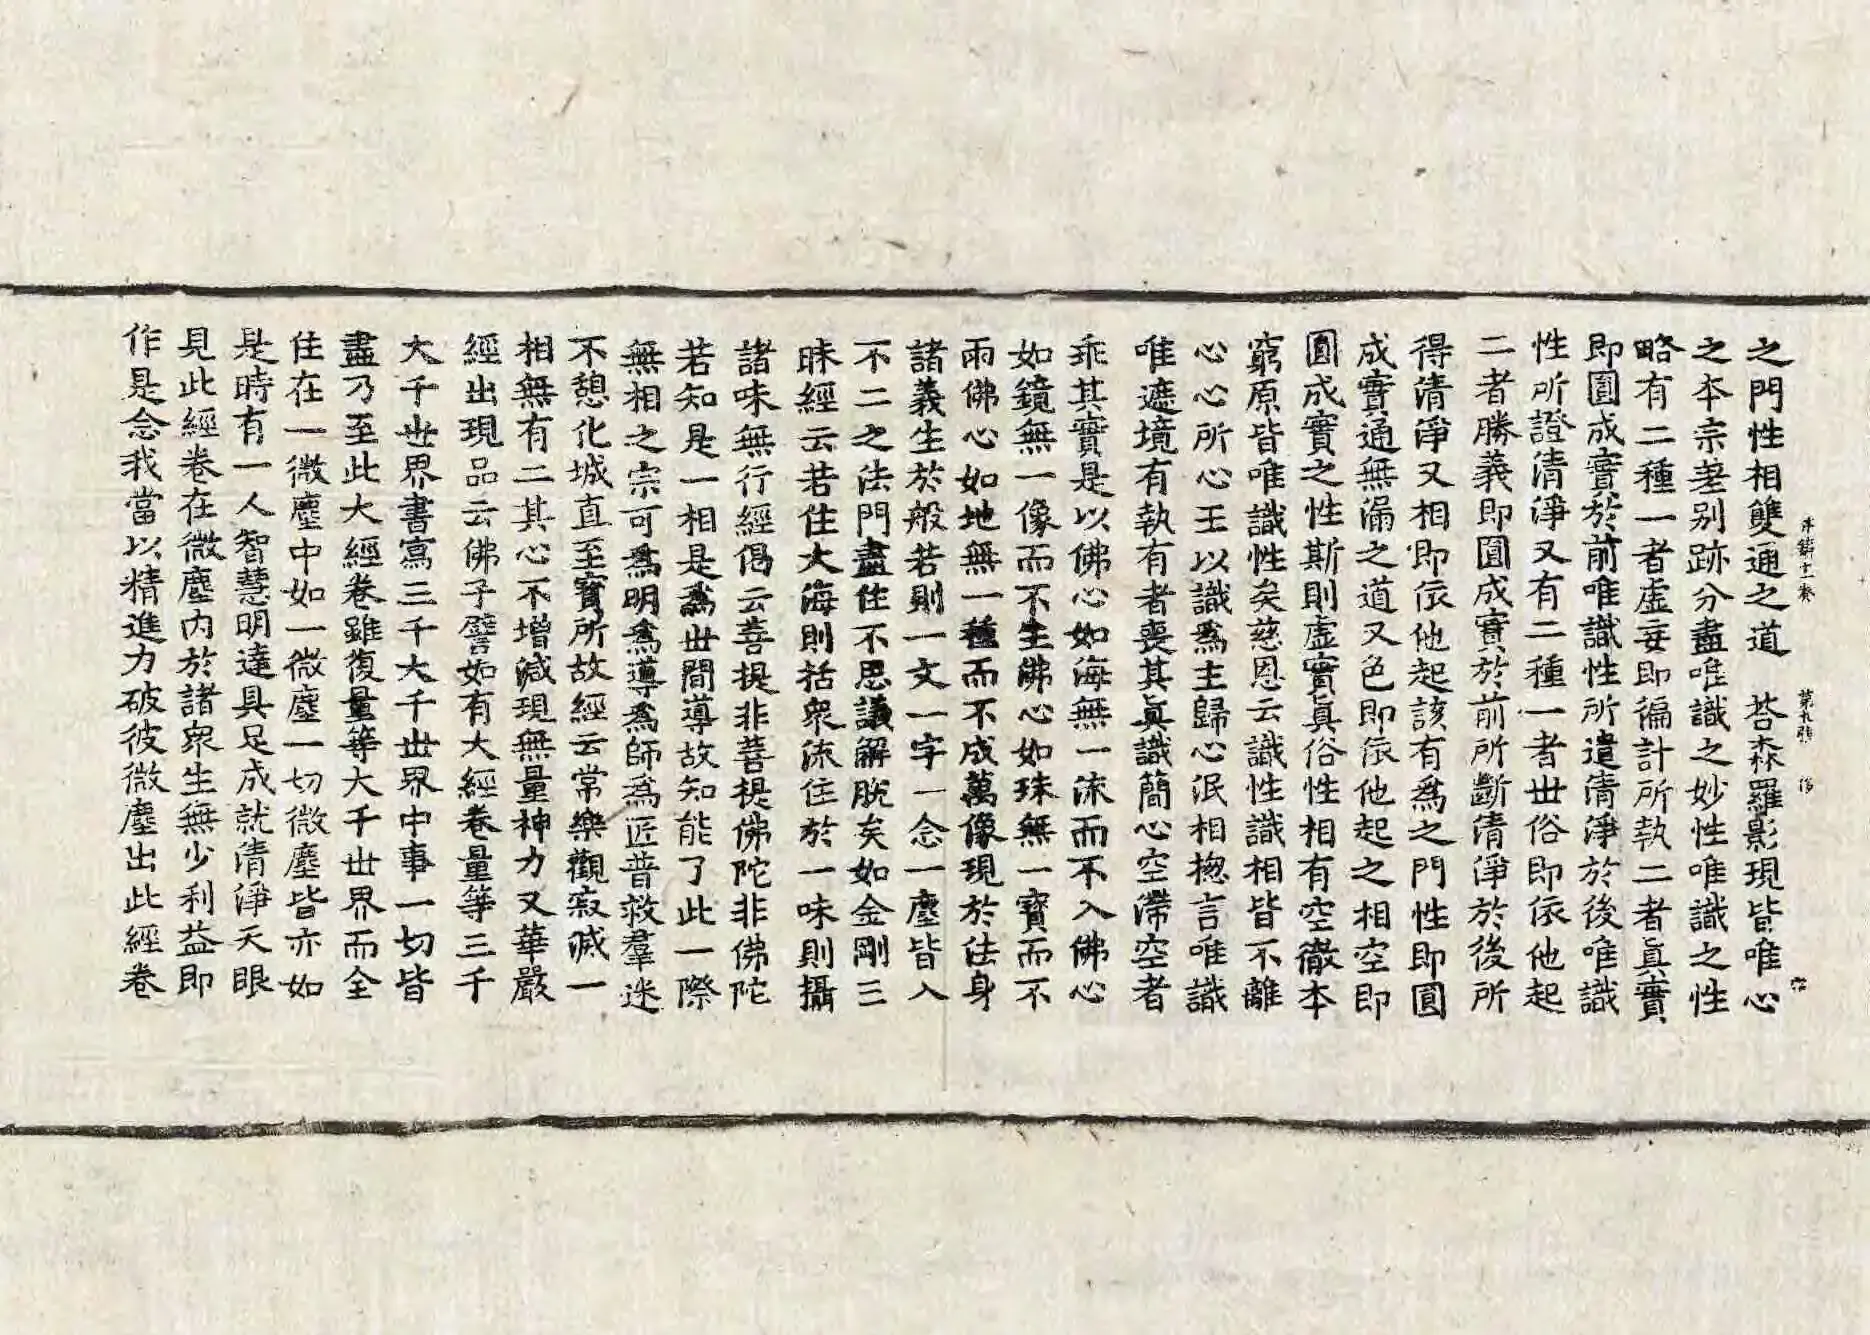 之門性相雙通之道　答森羅影現皆唯心
之本宗差別跡分盡唯識之妙性唯識之性
略有二種一者虛妄即徧計所執二者眞實
即圓成實於前唯識性所遣清淨於後唯識
性所證清淨又有二種一者世俗即依他起
二者勝義即圓成實於前所斷清淨於後所
得清淨又相即依他起該有爲之門性即圓
成實通無漏之道又色即依他起之相空即
圓成實之性斯則虛實眞俗性相有空徹本
窮原皆唯識性矣慈恩云識性識相皆不離
心心所心王以識爲主歸心泯相揔言唯識
唯遮境有執有者喪其眞識簡心空滯空者
乖其實是以佛心如海無一流而不入佛心
如鏡無一像而不生佛心如珠無一寶而不
雨佛心如地無一種而不成萬像現於法身
諸義生於般若則一文一字一念一塵皆入
不二之法門盡住不思議解脫矣如金剛三
昧經云若住大海則括衆流住於一味則攝
諸味無行經偈云菩提非菩提佛陀非佛陀
若知是一相是爲世間導故知能了此一際
無相之宗可爲明爲導爲師爲匠普救羣迷
不憩化城直至寶所故經云常樂觀寂滅一
相無有二其心不增減現無量神力又華嚴
經出現品云佛子譬如有大經卷量等三千
大千世界書寫三千大千世界中事一切皆
盡乃至此大經卷雖復量等大千世界而全
住在一微塵中如一微塵一切微塵皆亦如
是時有一人智慧明達具足成就清淨天眼
見此經卷在微塵內於諸衆生無少利益即
作是念我當以精進力破彼微塵出此經卷